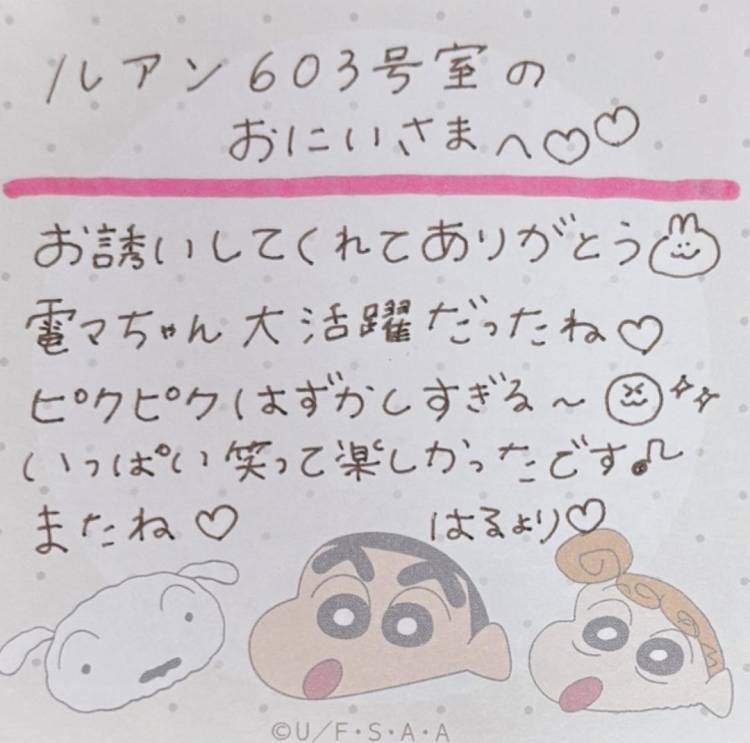 ルアン603号室の
おにいさまへ♡♡
お誘いしてくれてありがとう
電マちゃん大活躍だったね♡
ピクピクはずかしすぎる〜
いっぱい笑って楽しかったです♫
またね♡
はるより♡
©U/F・S・A・A